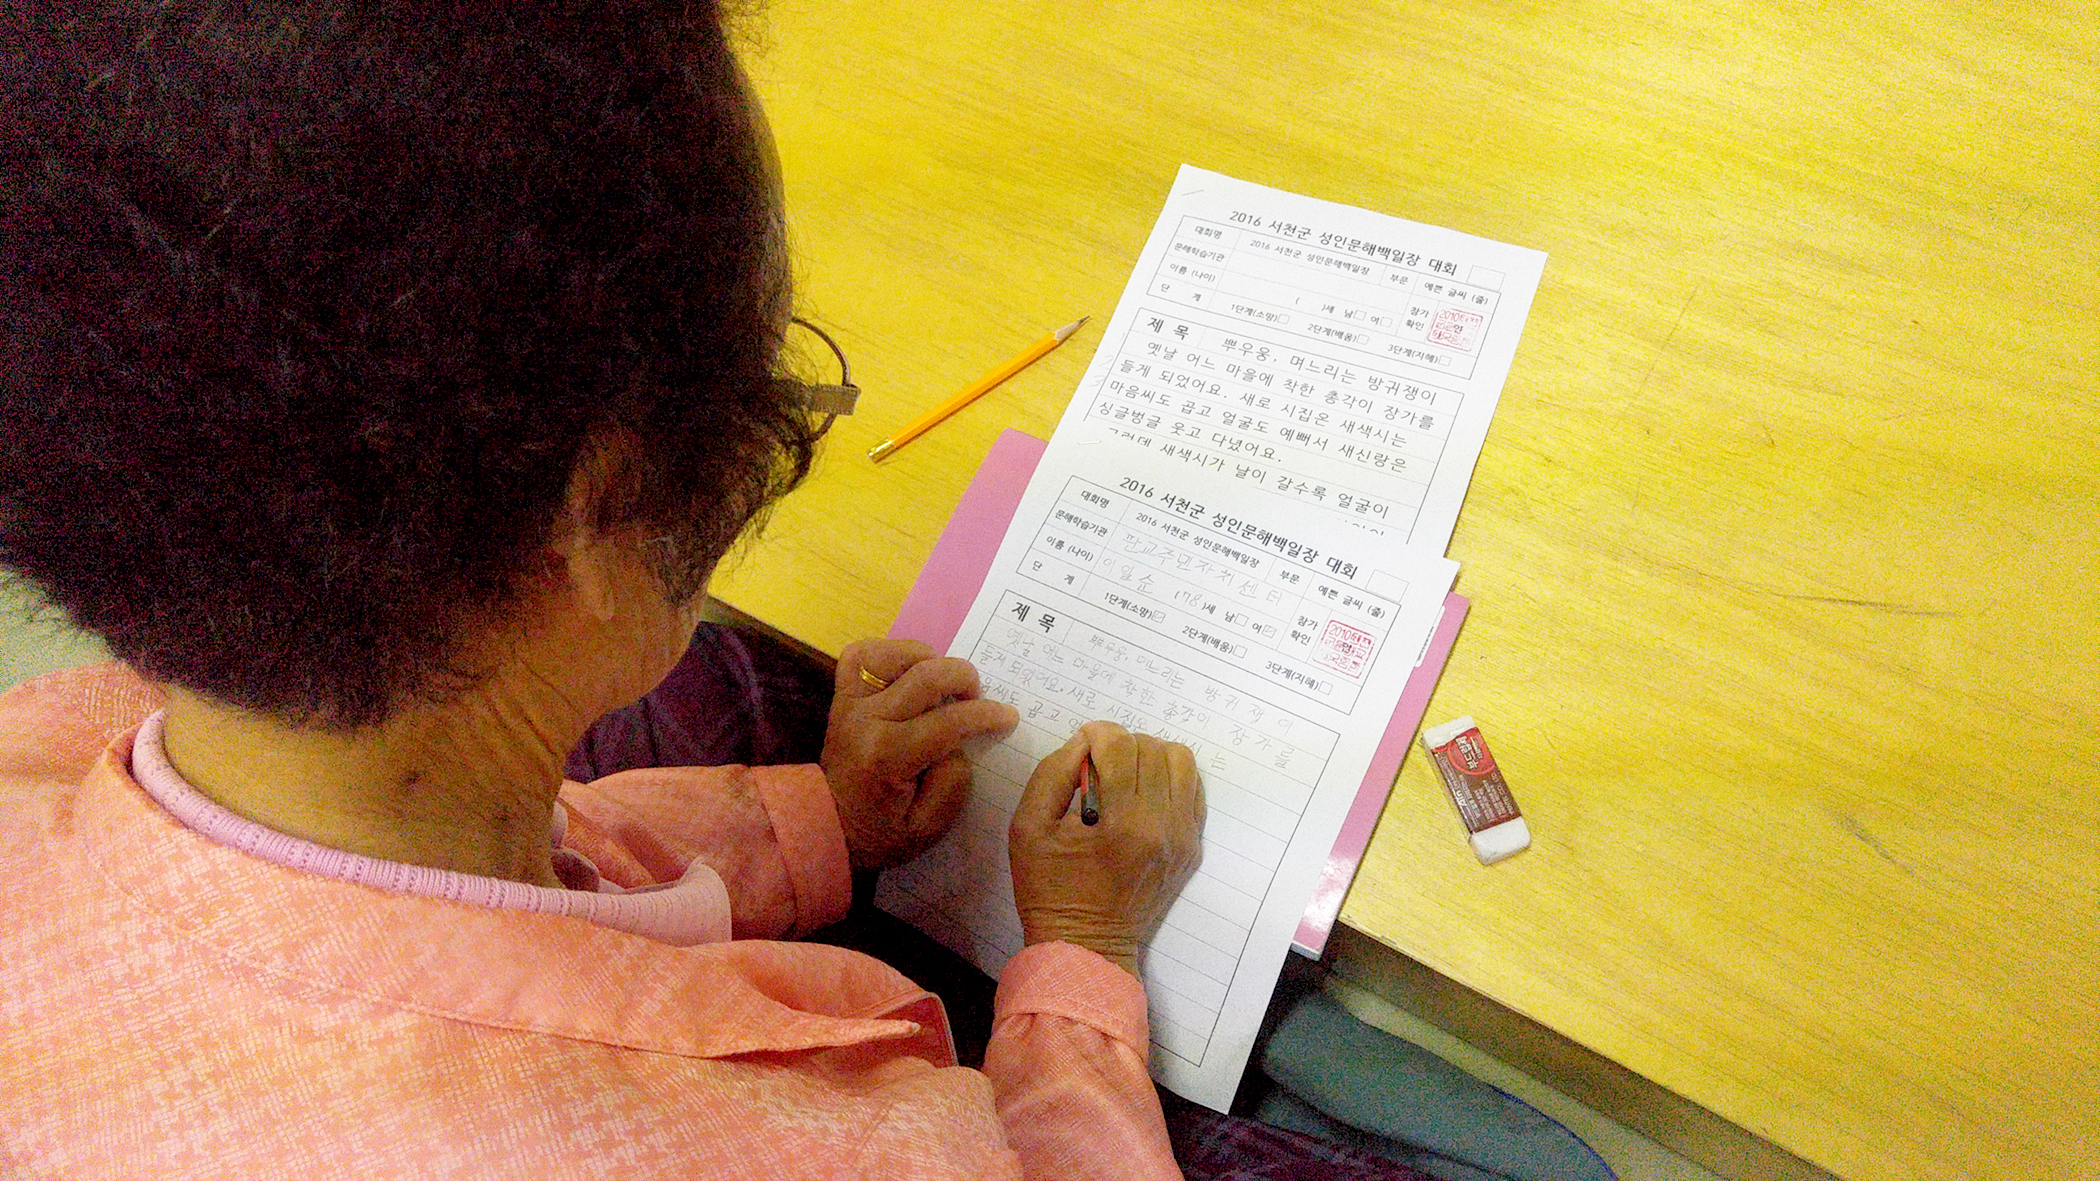 2016 서천군 성인문해백일장 대회
대회명 2016 서천군 성인문해백일장 부문 예쁜 글씨 (줄)
문해학습기관
이름 (나이) ( )세 남□ 여□ 참가 확인 인
단 계 1단계(소망)□ 2단계(배움)□ 3단계(지혜)□
제 목 뿌우웅, 며느리는 방귀쟁이
옛날 어느 마을에 착한 총각이 장가를
들게 되었어요. 새로 시집온 새색시는
마음씨도 곱고 얼굴도 예뻐서 새신랑은
싱글벙글 웃고 다녔어요.
그런데 새색시가 날이 갈수록 얼굴이
2016 서천군 성인문해백일장 대회
대회명 2016 서천군 성인문해백일장 부문 예쁜 글씨 (줄)
문해학습기관 판교주민자치센터
이름 (나이) 이일순 (78)세 남□ 여☑ 참가 확인 인
단 계 1단계(소망)☑ 2단계(배움)□ 3단계(지혜)□
제 목 뿌우웅, 며느리는 방귀쟁이
옛날 어느 마을에 착한 총각이 장가를
들게 되었어요. 새로 시집온 새색시는
음씨도 곱고